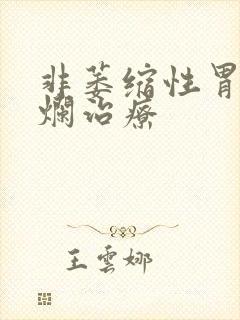 非萎缩性胃
爛治療
王雲娜